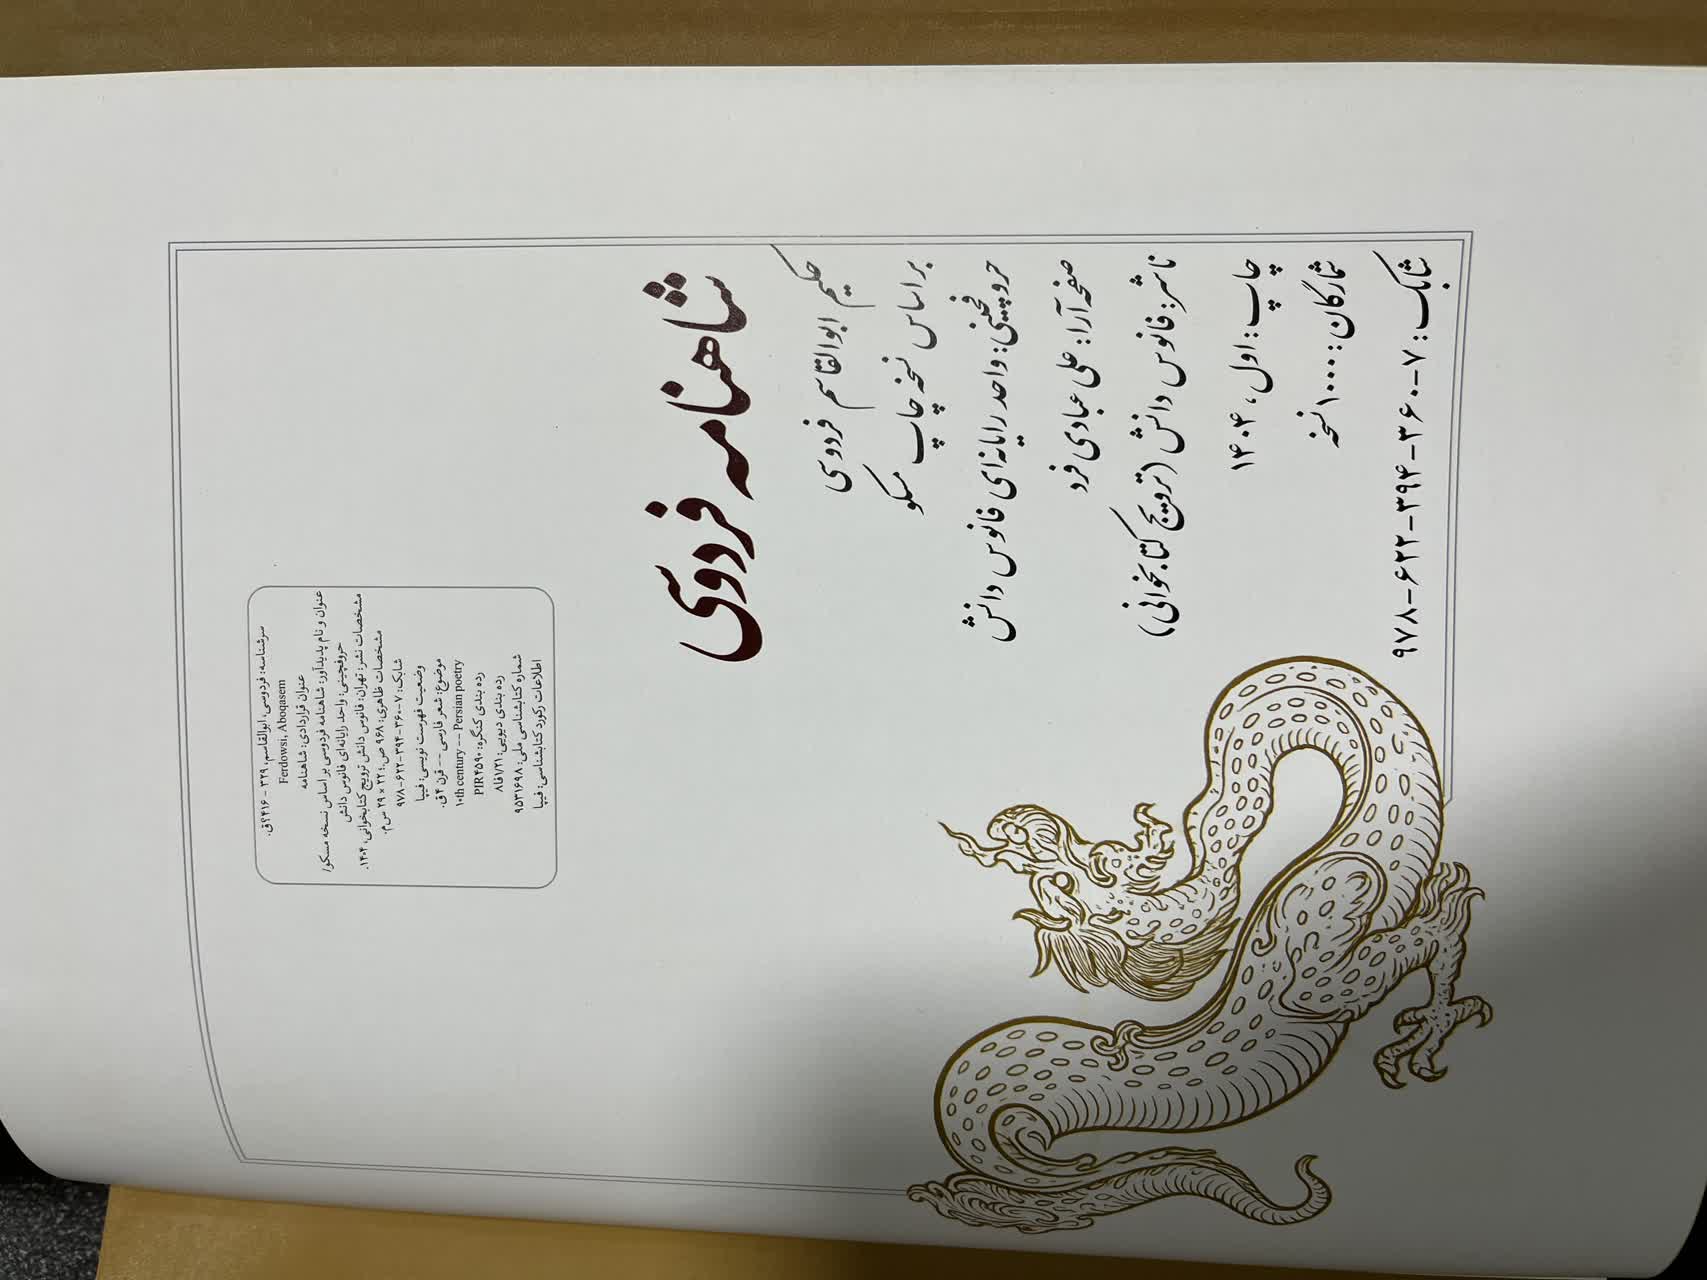 سرشناسه: فردوسی، ابوالقاسم، ۳۲۹ - ۴۱۶؟ق.
Ferdowsi, Aboqasem
عنوان قراردادی: شاهنامه
عنوان و نام پدیدآور: شاهنامه فردوسی بر اساس نسخه مسکو/
حروفچینی: واحد رایانه‌ای فانوس دانش
مشخصات نشر: تهران: فانوس دانش ترویج کتابخوانی، ۱۴۰۴.
مشخصات ظاهری: ۹۶۸ ص.؛ ۲۲ × ۲۹ س‌م.
شابک: ۷-۳۶۰-۳۹۴-۶۲۲-۹۷۸
وضعیت فهرست نویسی: فیپا
موضوع: شعر فارسی -- قرن ۴ق.
۱۰th century -- Persian poetry
رده بندی کنگره: PIR۴۵۹۰
رده بندی دیویی: ۸فا۱/۲۱
شماره کتابشناسی ملی: ۹۵۳۱۶۹۸
اطلاعات رکورد کتابشناسی: فیپا
شاهنامه فردوسی
حکیم ابوالقاسم فردوسی
براساس نسخه چاپ مسکو
حروفچینی: واحد رایانه‌ای فانوس دانش
صفحه‌آرا: علی عبادی فرد
ناشر: فانوس دانش (ترویج کتابخوانی)
چاپ: اول، ۱۴۰۴
شمارگان: ۱۰۰۰ نسخه
شابک: ۷-۳۶۰-۳۹۴-۶۲۲-۹۷۸